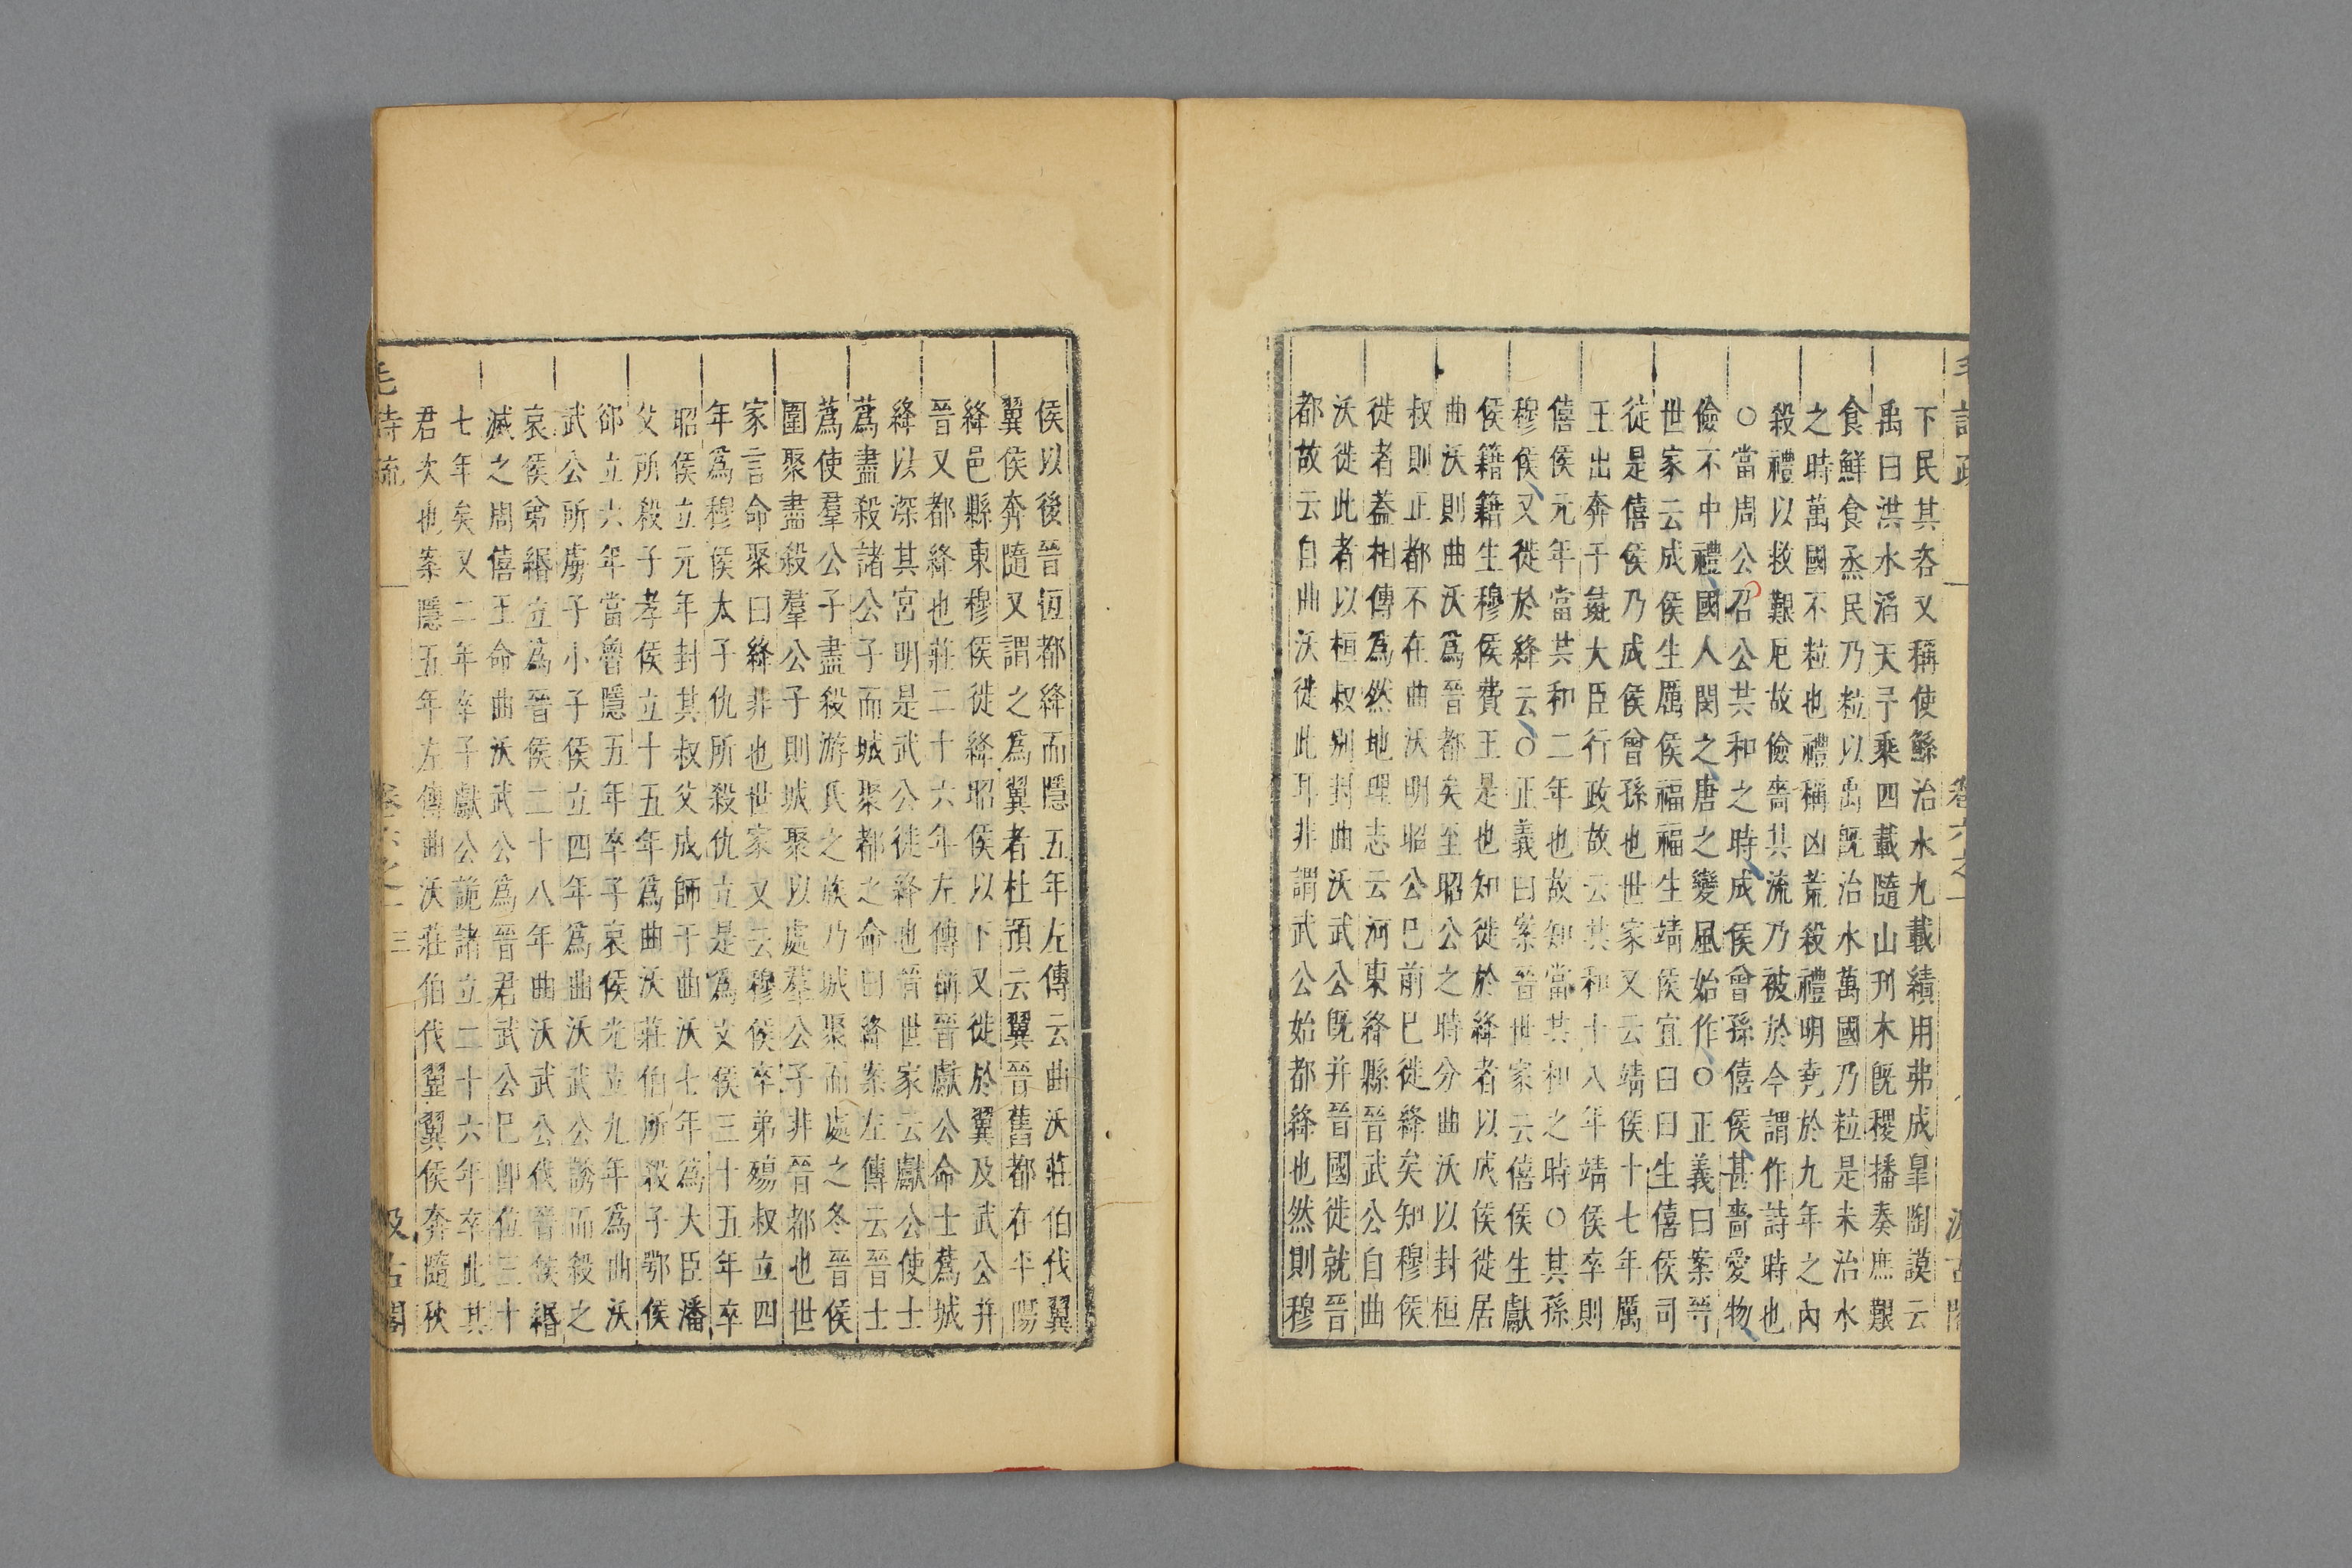 下民其咨又稱使鯀治水九載績用弗成臯陶謨云
禹曰洪水滔天予乘四載隨山刋木旣稷播奏庶艱
食鮮食烝民乃粒以禹旣治水萬國乃粒是未治水
之時萬國不粒也禮稱凶荒殺禮明堯於九年之內
殺禮以救艱厄故儉嗇其流乃被於今謂作詩時也
○當周公召公共和之時成侯曾孫僖侯甚嗇愛物
儉不中禮國人閔之唐之變風始作○正義曰案晉
世家云成侯生厲侯福福生靖侯宜曰曰生僖侯司
徒是僖侯乃成侯曾孫也世家又云靖侯十七年厲
王出奔于彘大臣行政故云共和十八年靖侯卒則
僖侯元年當共和二年也故知當共和之時○其孫
穆侯又徙於絳云○正義曰案晉世家云僖侯生獻
侯籍籍生穆侯費王是也知徙於絳者以成侯徙居
曲沃則曲沃爲晉都矣至昭公之時分曲沃以封桓
叔則正都不在曲沃明昭公巳前巳徙絳矣知穆侯
徙者葢相傳爲然地理志云河東絳縣晉武公自曲
沃徙此者以桓叔別封曲沃武公旣并晉國徙就晉
都故云自曲沃徙此耳非謂武公始都絳也然則穆
侯以後晉恆都絳而隱五年左傳云曲沃莊伯伐翼
翼侯奔隨又謂之爲翼者杜預云翼晉舊都在平陽
絳邑縣東穆侯徙絳昭侯以下又徙於翼及武公并
晉又都絳也莊二十六年左傳稱晉獻公命士蔿城
絳以深其宮明是武公徙絳也晉世家云獻公使士
蔿盡殺諸公子而城聚都之命曰絳案左傳云晉士
蔿使羣公子盡殺游氏之族乃城聚而處之冬晉侯
圍聚盡殺羣公子則城聚以處羣公子非晉都也世
家言命聚曰絳非也世家又云穆侯卒弟殤叔立四
年爲穆侯太子仇所殺仇立是爲文侯三十五年卒
昭侯立元年封其叔父成師于曲沃七年爲大臣潘
父所殺子孝侯立十五年爲曲沃莊伯所殺子鄂侯
郤立六年當魯隱五年卒子哀侯光立九年爲曲沃
武公所虜子小子侯立四年爲曲沃武公誘而殺之
哀侯弟緡立爲晉侯二十八年曲沃武公伐晉侯緡
滅之周僖王命曲沃武公爲晉君武公巳卽位三十
七年矣又二年卒子獻公詭諸立二十六年卒此其
君次也案隱五年左傳曲沃莊伯伐翼翼侯奔隨秋